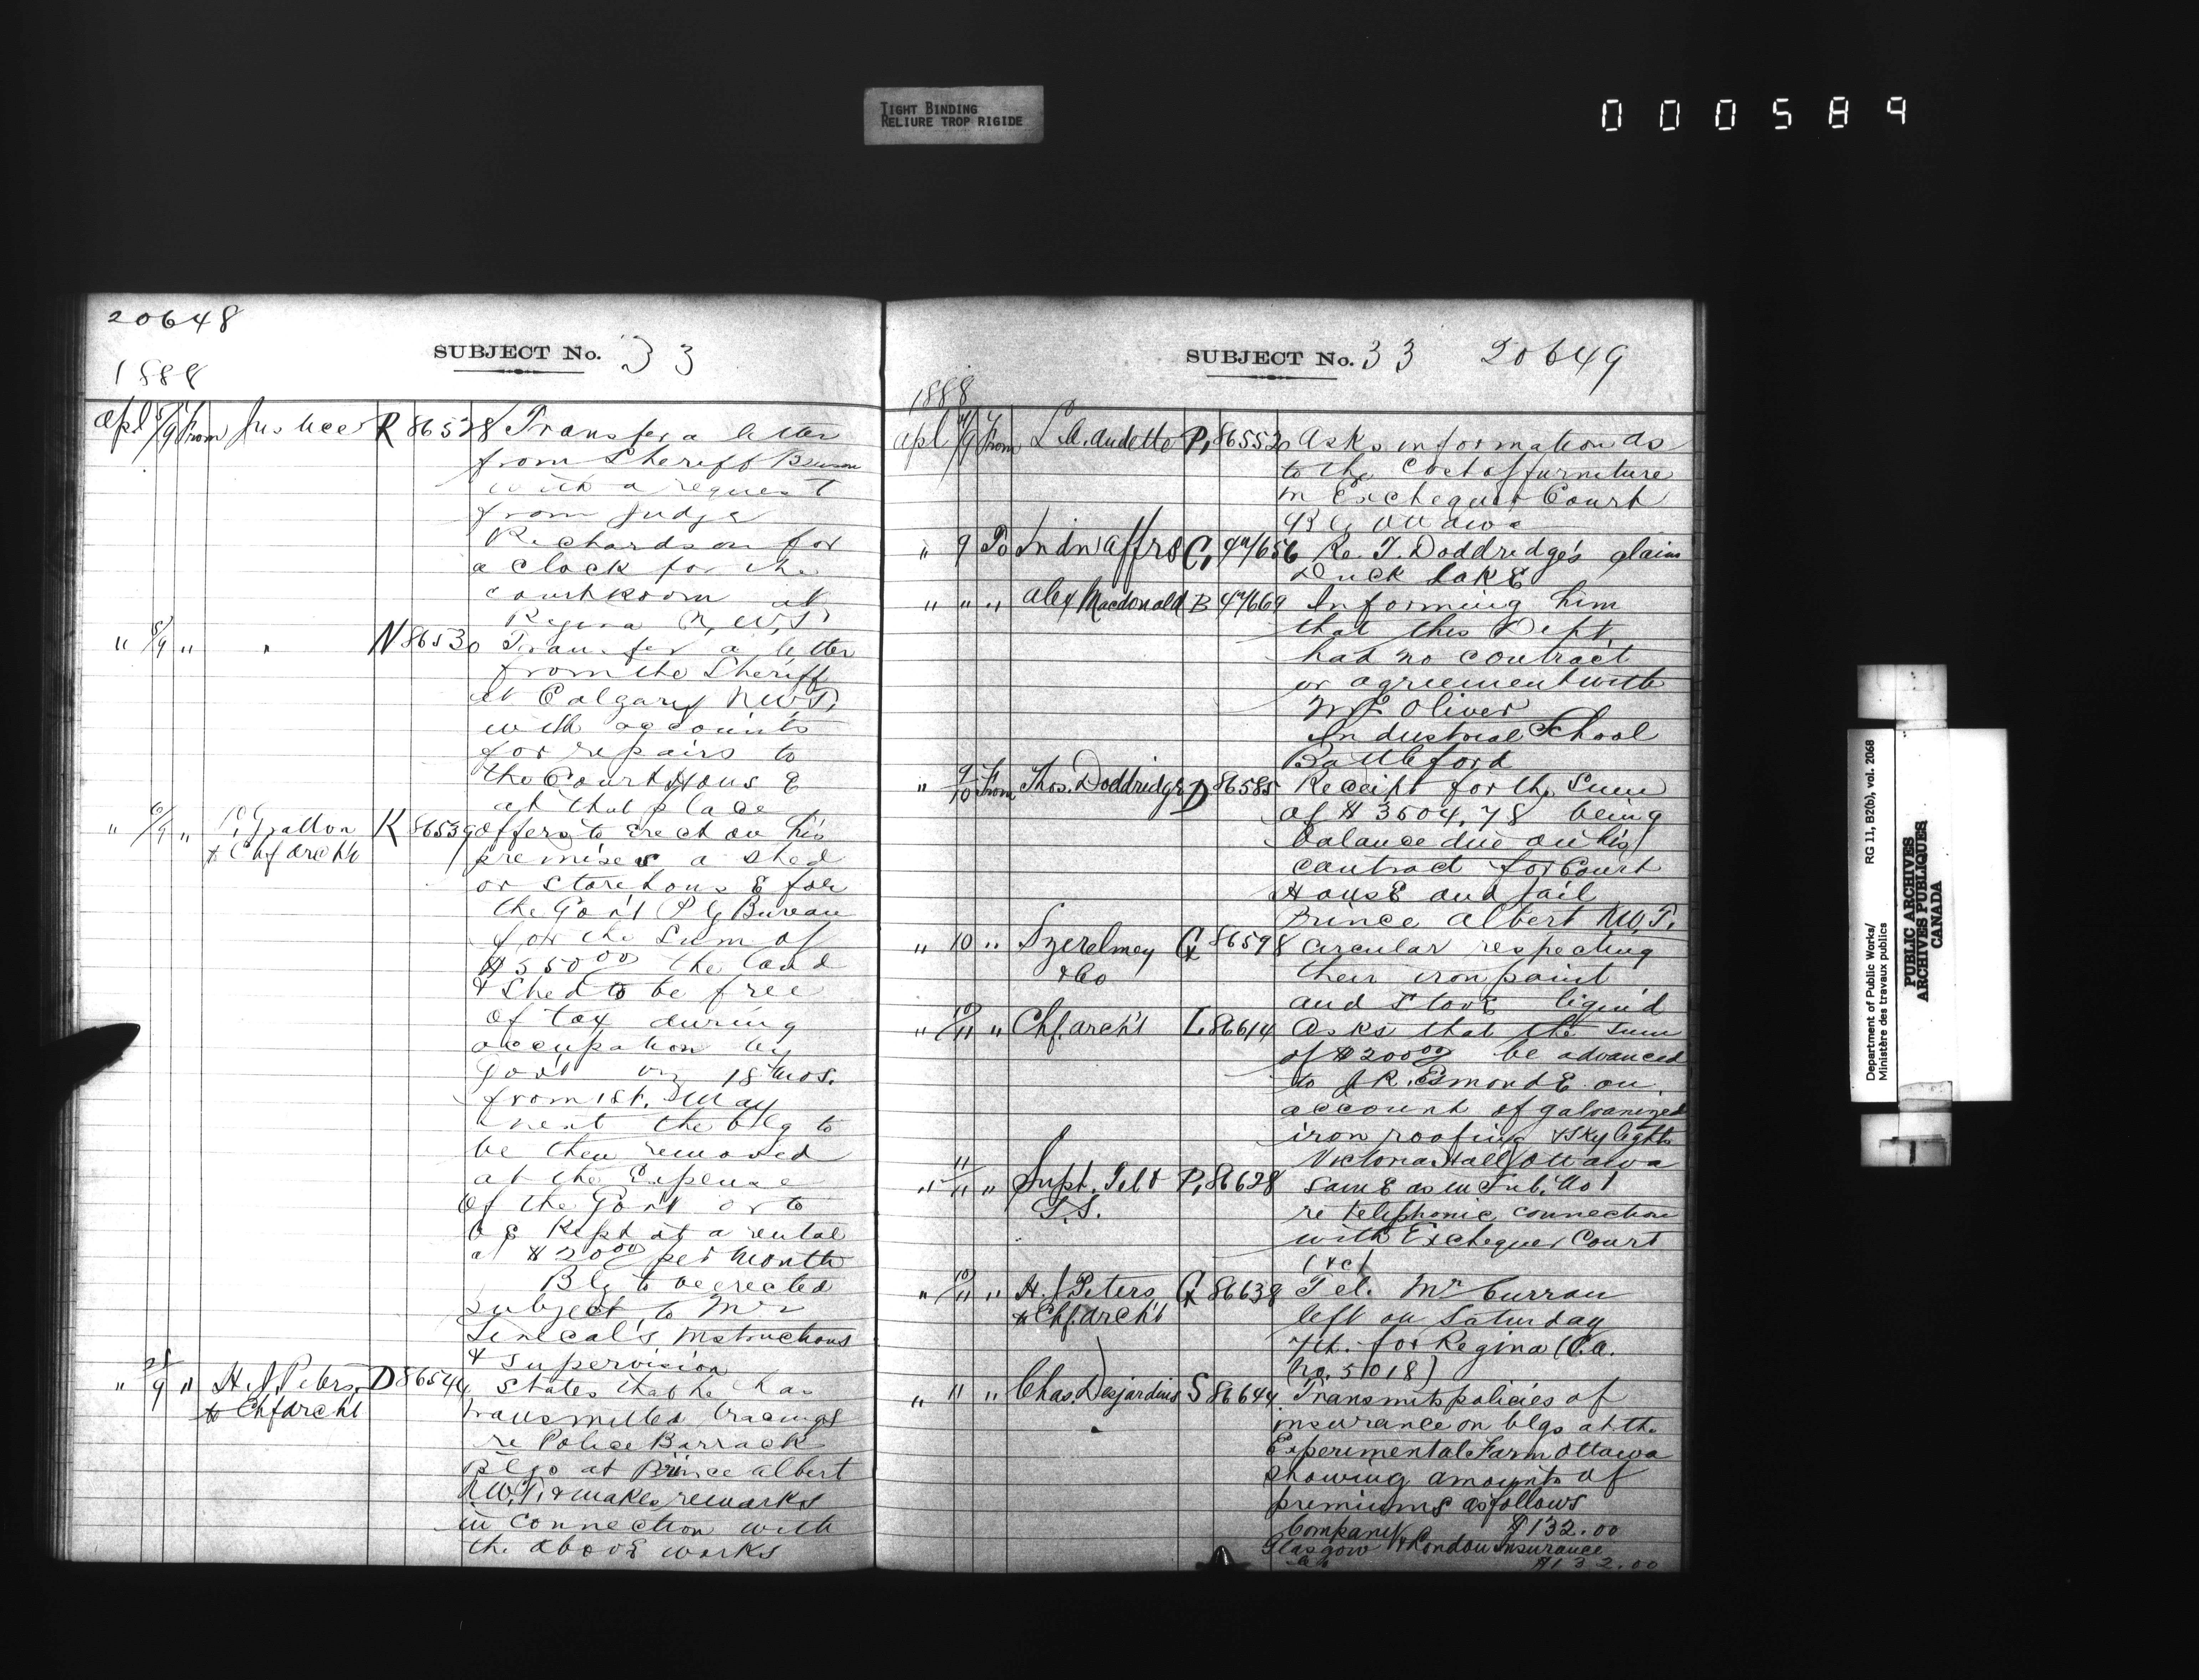 TIGHT BINDING
RELIURE TROP RIGIDE
000584
20648
SUBJECT No. 33
1888
Apl 5/9 From Justice R 86528 Transfer a letter
from Sheriff
with a request
from Judge
Richardson for
a clock for the
courtroom at
Regina N.W.T.
" 5/9 " " N 86530 Transfer a letter
from the Sheriff
at Calgary N.W.T.
with accounts
for repairs to
the Court House
at that place
" 6/9 " Gratton K 86539 Offers to erect on his
& Chf Archt premises a shed
or storehouse for
the Gov't P Bureau
for the sum of
$550 00 the land
& shed to be free
of tax during
occupation by
Gov't 18 mos.
from 1st. May
next the blg to
be then removed
at the expense
of the Gov't or to
be kept at a rental
at $20 00 per month
Blg to be erected
subject to Mr
Senecal's instructions
& supervision
" 9 " H. J. Peters D 86544 States that he has
to Chf Archt transmitted tracings
re Police Barrack
Blgs at Prince Albert
N.W.T. & makes remarks
in connection with
the above works
SUBJECT No. 33 20649
1888
Apl 9 From L. A. Audette P. 86552 Asks information as
to the cost of furniture
in Exchequer Court
Ottawa
" 9 To Indn Affrs C. 656 Re. T. Doddridge's claim
Duck Lake
" " " Alex Macdonald B 669 Informing him
that this Dept.
had no contract
or agreement with
Mr Oliver
Industrial School
Battleford
" 9/10 From Thos. Doddridge D 86585 Receipt for the sum
of $3504.78 being
balance due on his
contract for Court
House and Jail
Prince Albert N.W.T.
" 10 " Szerelmey G 86598 Circular respecting
& Co their iron paint
and stove liquid
" 10/11 " Chf. Arch't L 86614 Asks that the sum
of $200 00 be advanced
to J. R. Esmonde on
account of galvanized
iron roofing & skylights
Victoria Hall Ottawa
" 11/11 " Supt. Tel & P. 86628 Same as in Sub. No 1
S.S. re telephonic connection
with Exchequer Court
(&c)
" 10/11 " H. J. Peters G 86638 Tel. Mr Curran
to Chf. Arch't left on Saturday
7th. for Regina (C.A.
No. 5018)
" 11 " Chas. Desjardins S 86644 Transmits policies of
insurance on blgs at the
Experimental Farm Ottawa
showing amounts of
premiums as follows
Company $132.00
Glasgow & London Insurance
Co $132.00
Department of Public Works/
Ministère des travaux publics
RG 11, B2(b), vol. 2068
PUBLIC ARCHIVES
ARCHIVES PUBLIQUES
CANADA